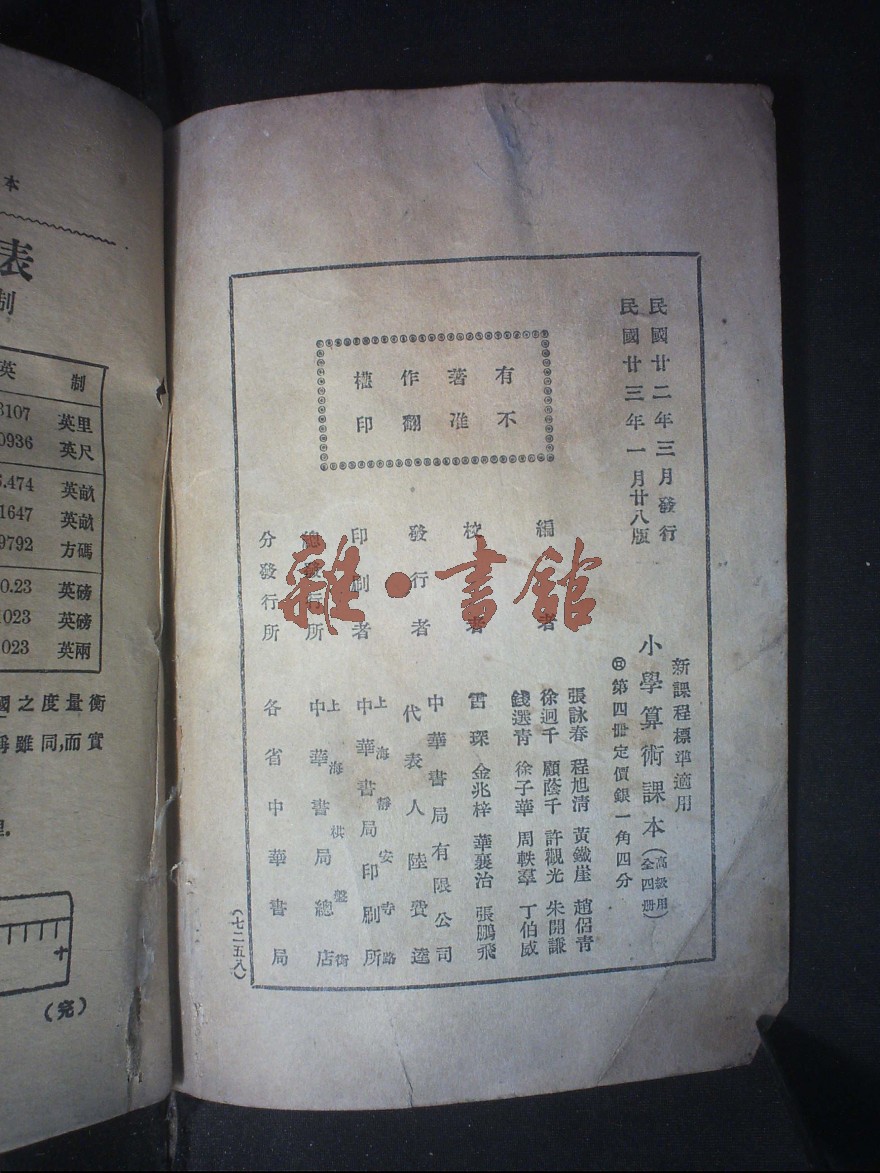 民國廿二年三月發行
民國廿三年一月廿八版
有著作權
不准翻印
新課程標準適用
小學算術課本（高級用全四冊）
第四冊定價銀一角四分
編者
張詠春 程旭清 黃鐵崖 趙侶青
徐迥千 顧蔭千 許觀光 朱開謙
錢選青 徐子華 周軼羣 丁伯威
校者
雷琛 金兆梓 華襄治 張鵬飛
發行者
中華書局有限公司
代表人 陸費逵
印刷者
上海靜安寺路
中華書局印刷所
總發行所
上海棋盤街
中華書局總店
分發行所
各省中華書局
（七二五八）
雜·書館
本
表
制
英 制
3107 英里
0936 英尺
.474 英畝
1647 英畝
9792 方碼
0.23 英磅
1023 英磅
023 英兩
衡量度之國
實而,同雖稱
(完)